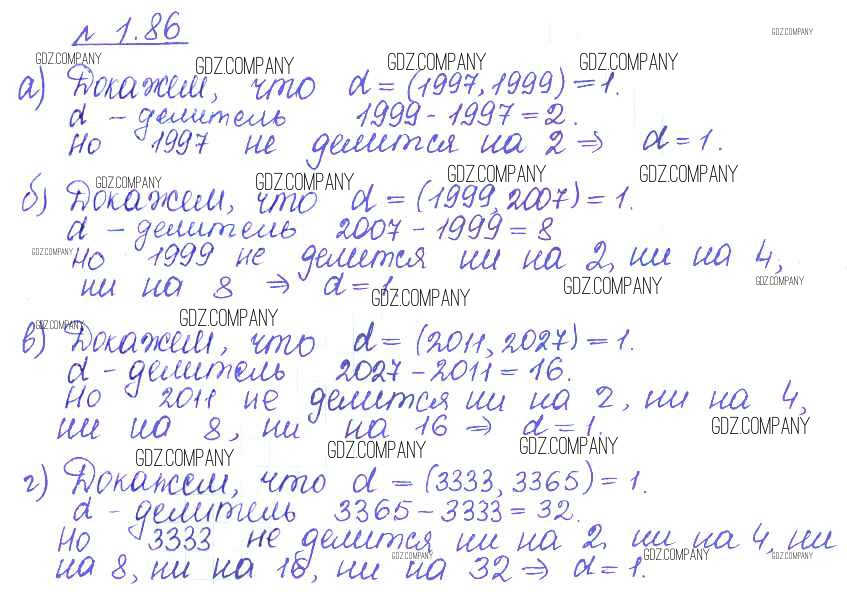 № 1.86
GDZ.COMPANY
GDZ.COMPANY GDZ.COMPANY GDZ.COMPANY GDZ.COMPANY
а) Докажем, что d = (1997, 1999) = 1.
d - делитель 1999 - 1997 = 2.
Но 1997 не делится на 2 ⇒ d = 1.
GDZ.COMPANY GDZ.COMPANY GDZ.COMPANY GDZ.COMPANY
б) Докажем, что d = (1999, 2007) = 1.
d - делитель 2007 - 1999 = 8
GDZ.COMPANY Но 1999 не делится ни на 2, ни на 4,
ни на 8 ⇒ d = 1
GDZ.COMPANY GDZ.COMPANY GDZ.COMPANY
GDZ.COMPANY GDZ.COMPANY
в) Докажем, что d = (2011, 2027) = 1.
d - делитель 2027 - 2011 = 16.
Но 2011 не делится ни на 2, ни на 4,
ни на 8, ни на 16 ⇒ d = 1.
GDZ.COMPANY
GDZ.COMPANY GDZ.COMPANY GDZ.COMPANY
г) Докажем, что d = (3333, 3365) = 1.
d - делитель 3365 - 3333 = 32.
Но 3333 не делится ни на 2, ни на 4, ни
GDZ.COMPANY GDZ.COMPANY GDZ.COMPANY
на 8, ни на 16, ни на 32 ⇒ d = 1.